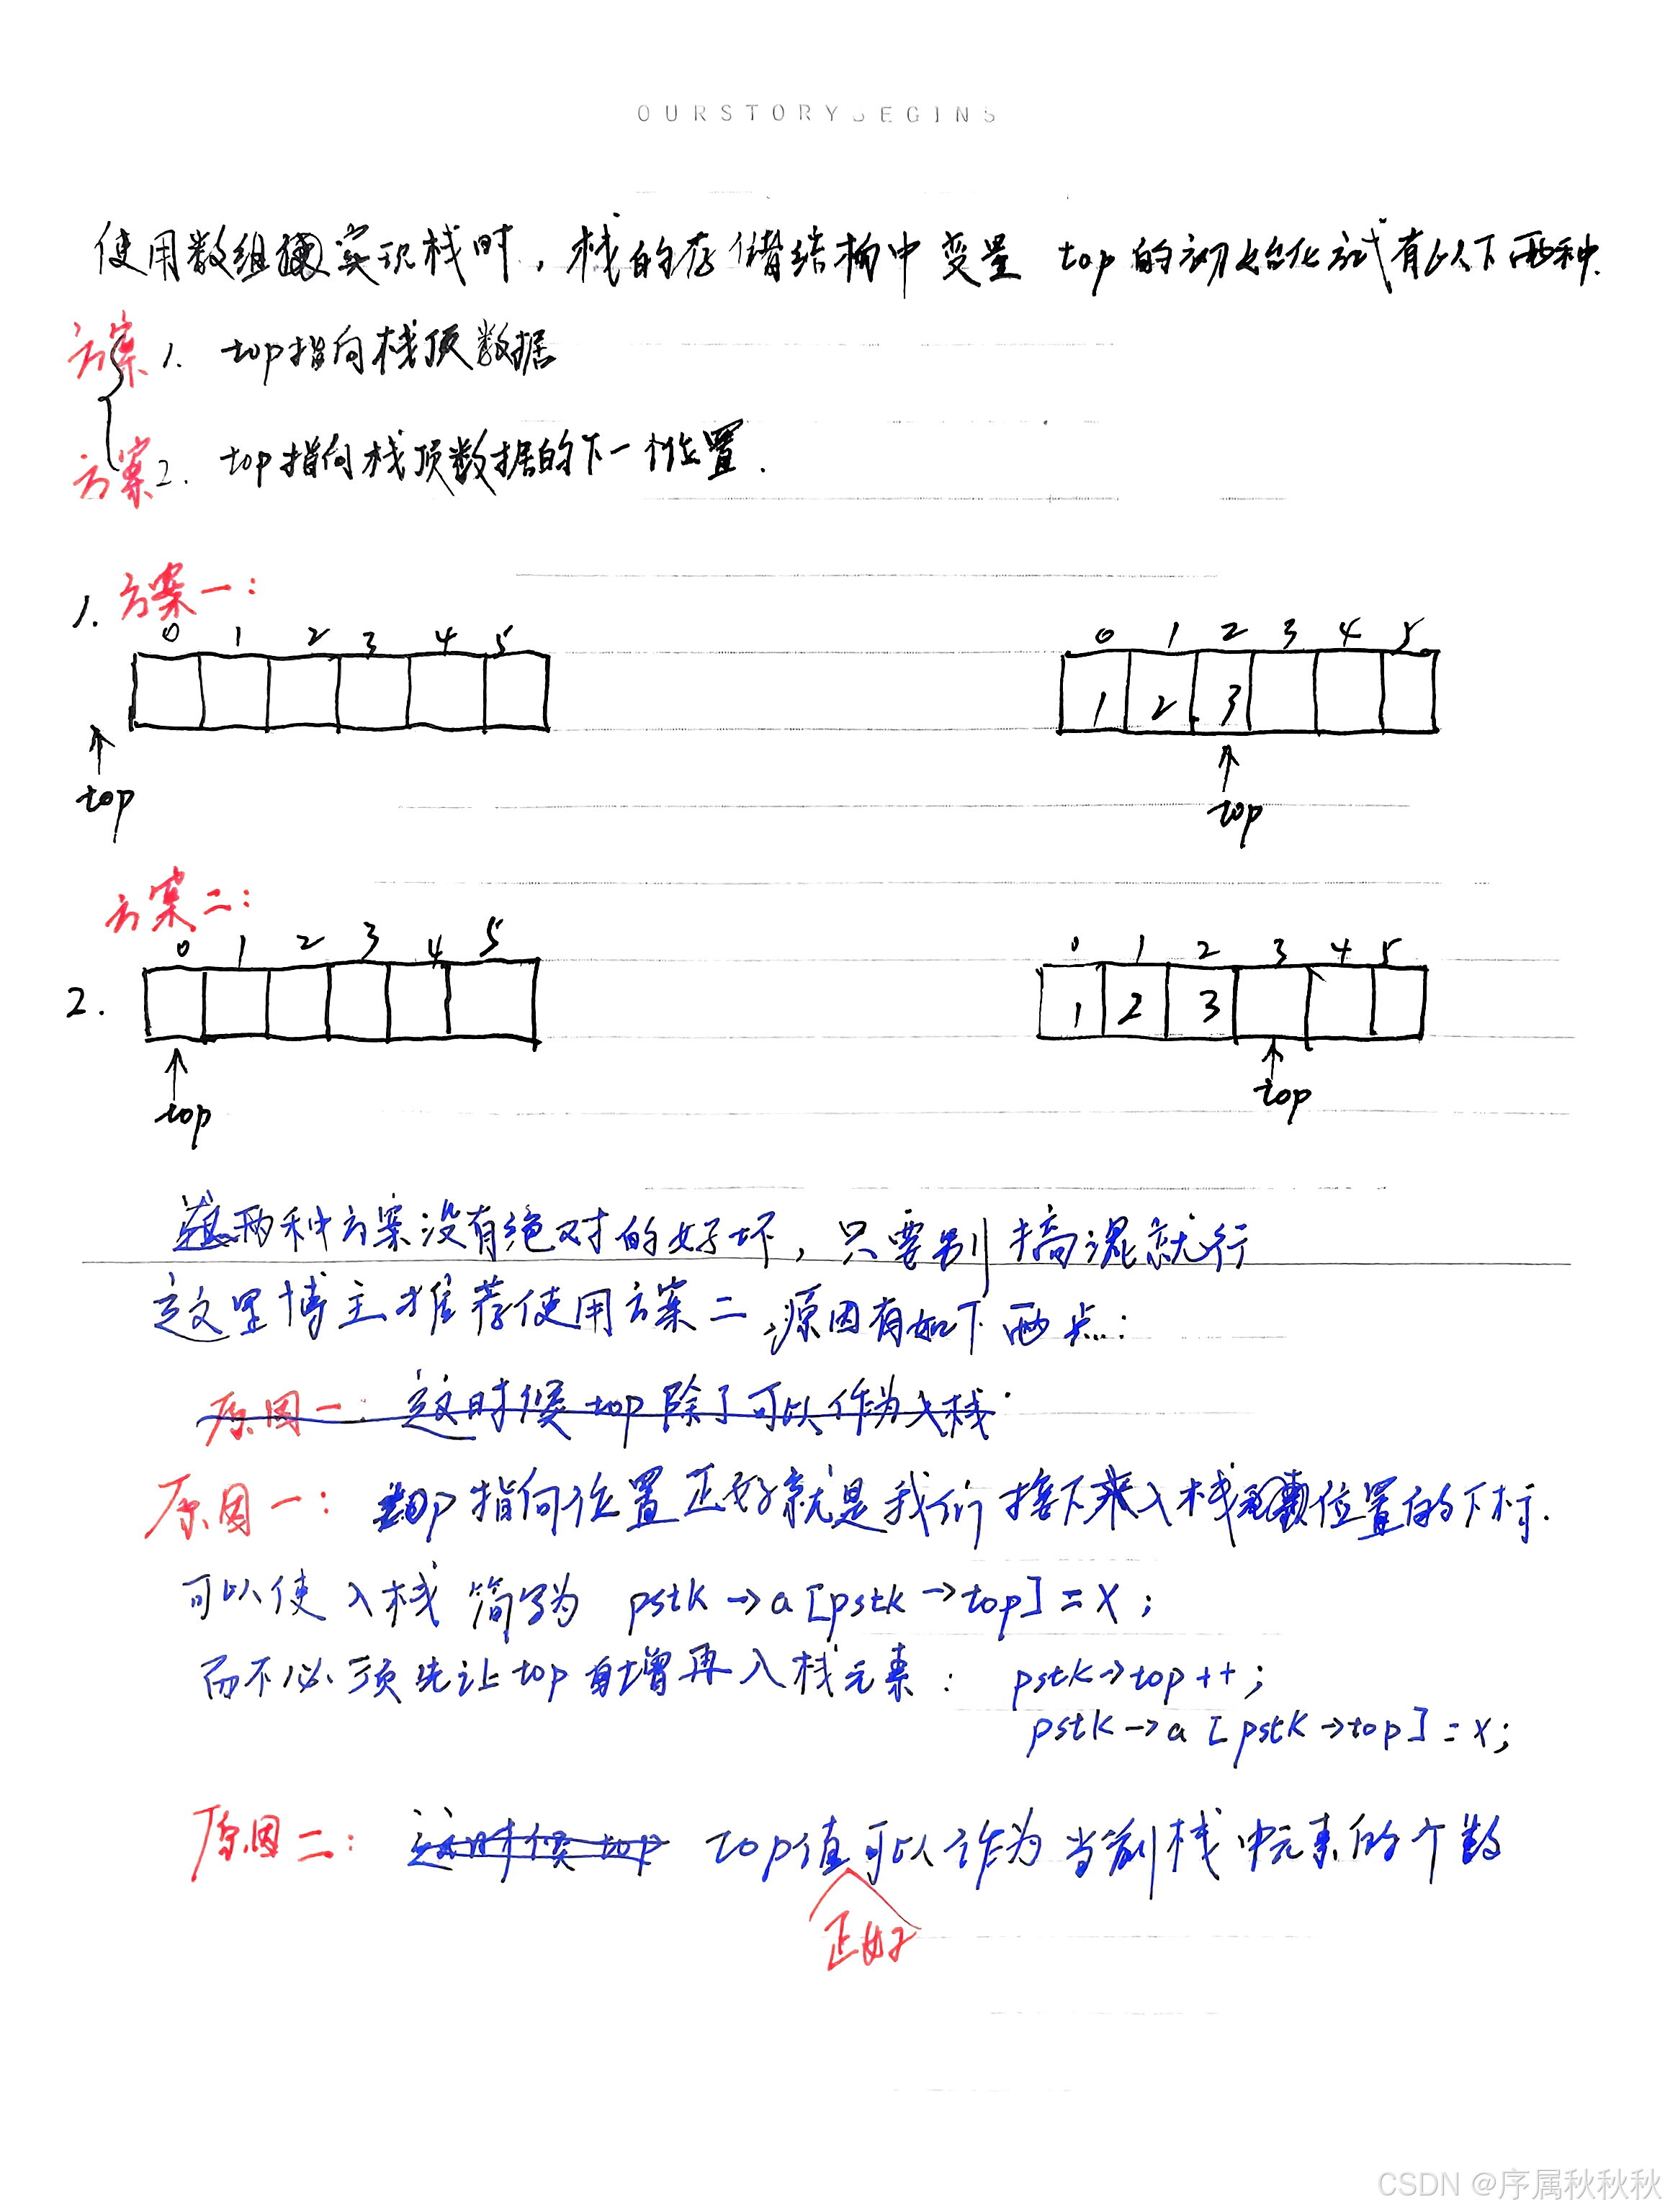 OURSTORYBEGINS
使用数组实现栈时，栈的存储结构中变量 top的初始化方式有以下两种.
方案1. top指向栈顶数据
方案2. top指向栈顶数据的下一个位置.
1. 方案一：
0 1 2 3 4 5 0 1 2 3 4 5
1 2 3
top top
方案二：
0 1 2 3 4 5 0 1 2 3 4 5
2. 1 2 3
top top
两种方案没有绝对的好坏，只要别搞混就行
这里博主推荐使用方案二，原因有如下两点：
原因一：这时候top除了可以作为入栈
原因一：top指向位置正好就是我们接下来入栈位置的下标.
可以使入栈简写为 pstk->a[pstk->top]=x;
而不必须先让top自增再入栈元素： pstk->top++;
pstk->a[pstk->top]=x;
原因二：这时候top top值可以作为当前栈中元素的个数
正好
CSDN @序属秋秋秋